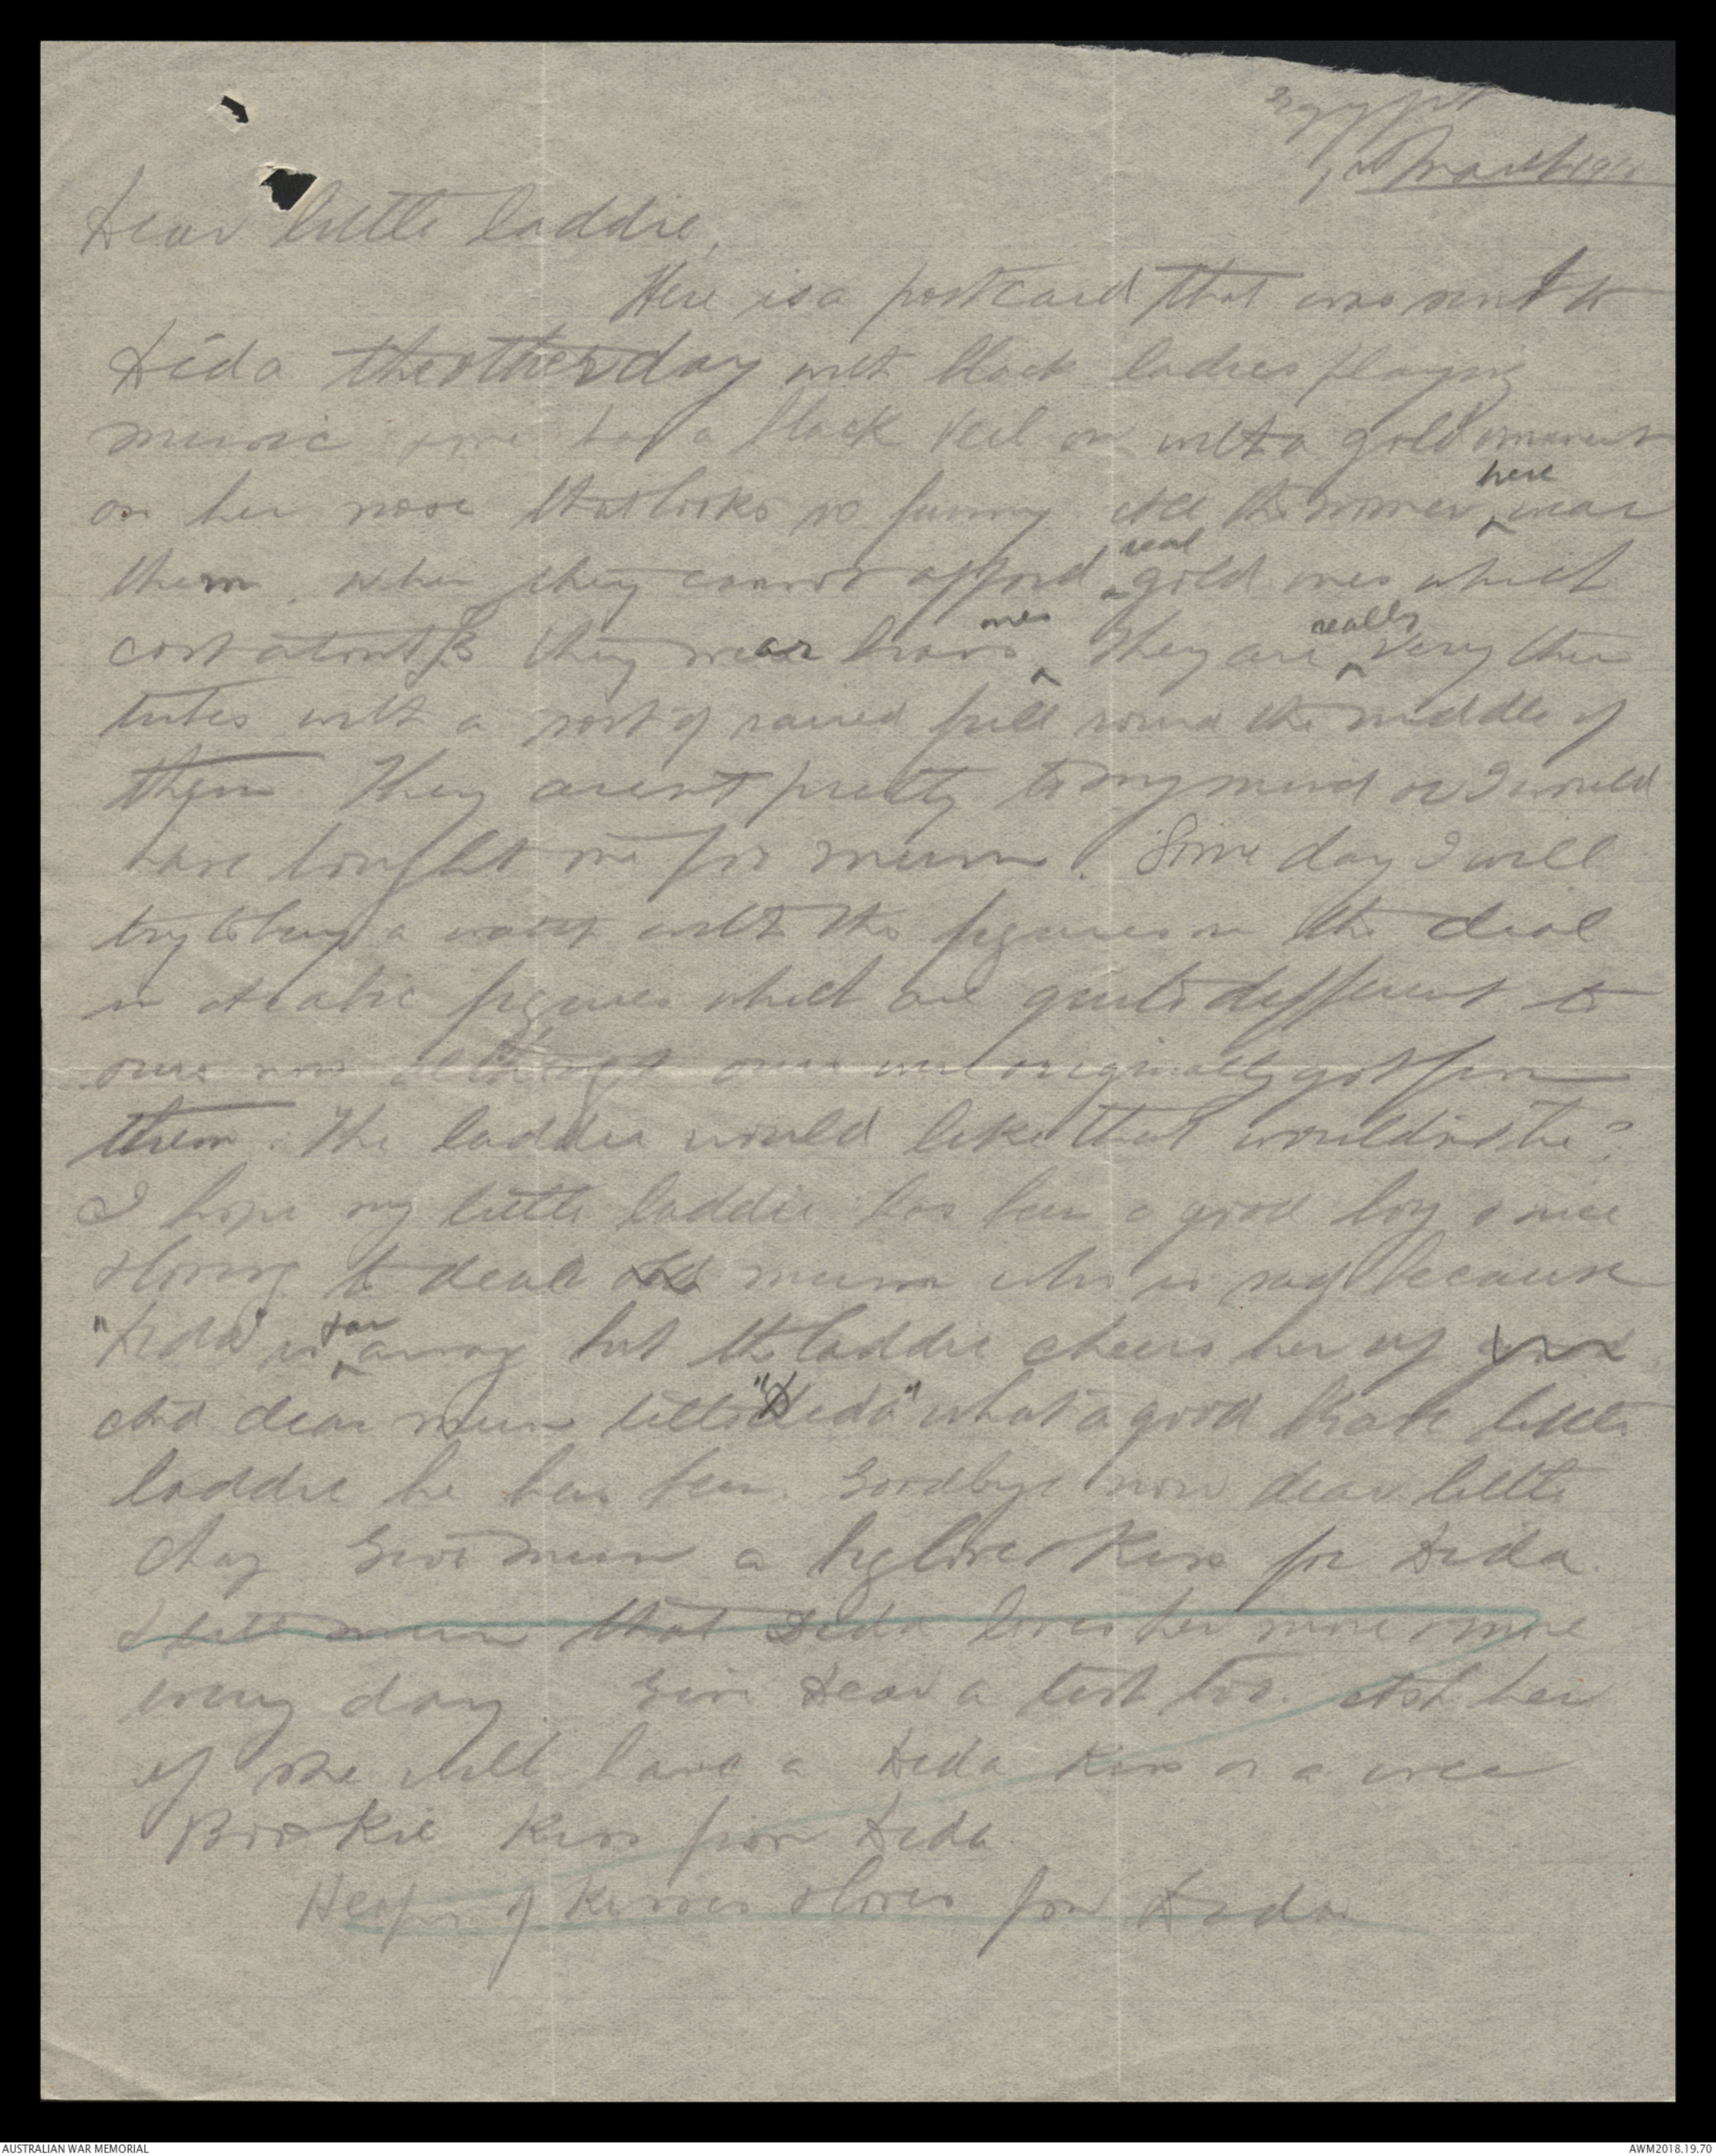 Egypt
1st March 1915
Dear little laddie,
Here is a postcard that was sent to
Dida the other day with black ladies playing
music one has a black veil on with a gold ornament
on her nose that looks so funny All the women ^here wear
them. when they cannot afford ^real gold ones which
cost about £3 they wear brass ^ones They are ^really very thin
tubes with a sort of raised frill round the middle of
them They arent pretty to my mind or I would
have bought one for mum. Some day I will
try to buy a watch with the figures on the dial
in Arabic figures which are quite different to
ours now although ours were originally got from
them. The laddie would like that wouldnt he?
I hope my little laddie has been a good boy & nice
& loving to dear old mum who is sad because
"Dida" is ^far away but the laddie cheers her up and
And dear mum tells "Dida" what a good little
laddie he has been. Goodbye now dear little
chap Give mum a big love & kiss for Dida.
& tell mum that Dida loves her more & more
every day Give Dear a too. Ask her
if she will have a Dida kiss or a wee
Bookie kiss from Dida.
Heaps of kisses & loves from Dida
AUSTRALIAN WAR MEMORIAL
AWM2018.19.70